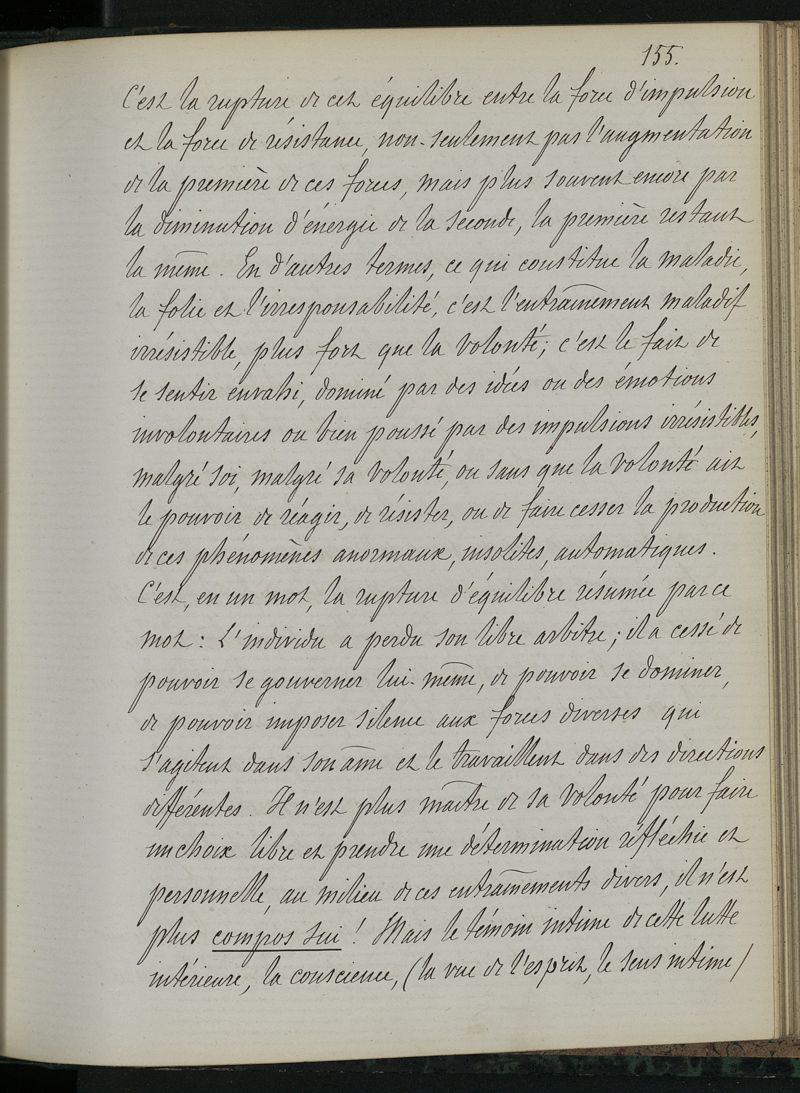 155.
C'est la rupture de cet équilibre entre la force d'impulsion
et la force de résistance, non-seulement par l'augmentation
de la première de ces forces, mais plus souvent encore par
la diminution d'énergie de la seconde, la première restant
la même. En d'autres termes, ce qui constitue la maladie,
la folie et l'irresponsabilité, c'est l'entraînement maladif
irrésistible, plus fort que la volonté; c'est le fait de
se sentir envahi, dominé par des idées ou des émotions
involontaires ou bien poussé par des impulsions irrésistibles,
malgré soi, malgré sa volonté, ou sans que la volonté ait
le pouvoir de réagir, de résister, ou de faire cesser la production
de ces phénomènes anormaux, insolites, automatiques.
C'est, en un mot, la rupture d'équilibre résumée par ce
mot: L'individu a perdu son libre arbitre; il a cessé de
pouvoir se gouverner lui-même, de pouvoir se dominer,
de pouvoir imposer silence aux forces diverses qui
s'agitent dans son âme et le travaillent dans des directions
différentes. Il n'est plus maître de sa volonté pour faire
un choix libre et prendre une détermination réfléchie et
personnelle, au milieu de ces entraînements divers, il n'est
plus compos sui! Mais le témoin intime de cette lutte
intérieure, la conscience, (la vue de l'esprit, le sens intime)